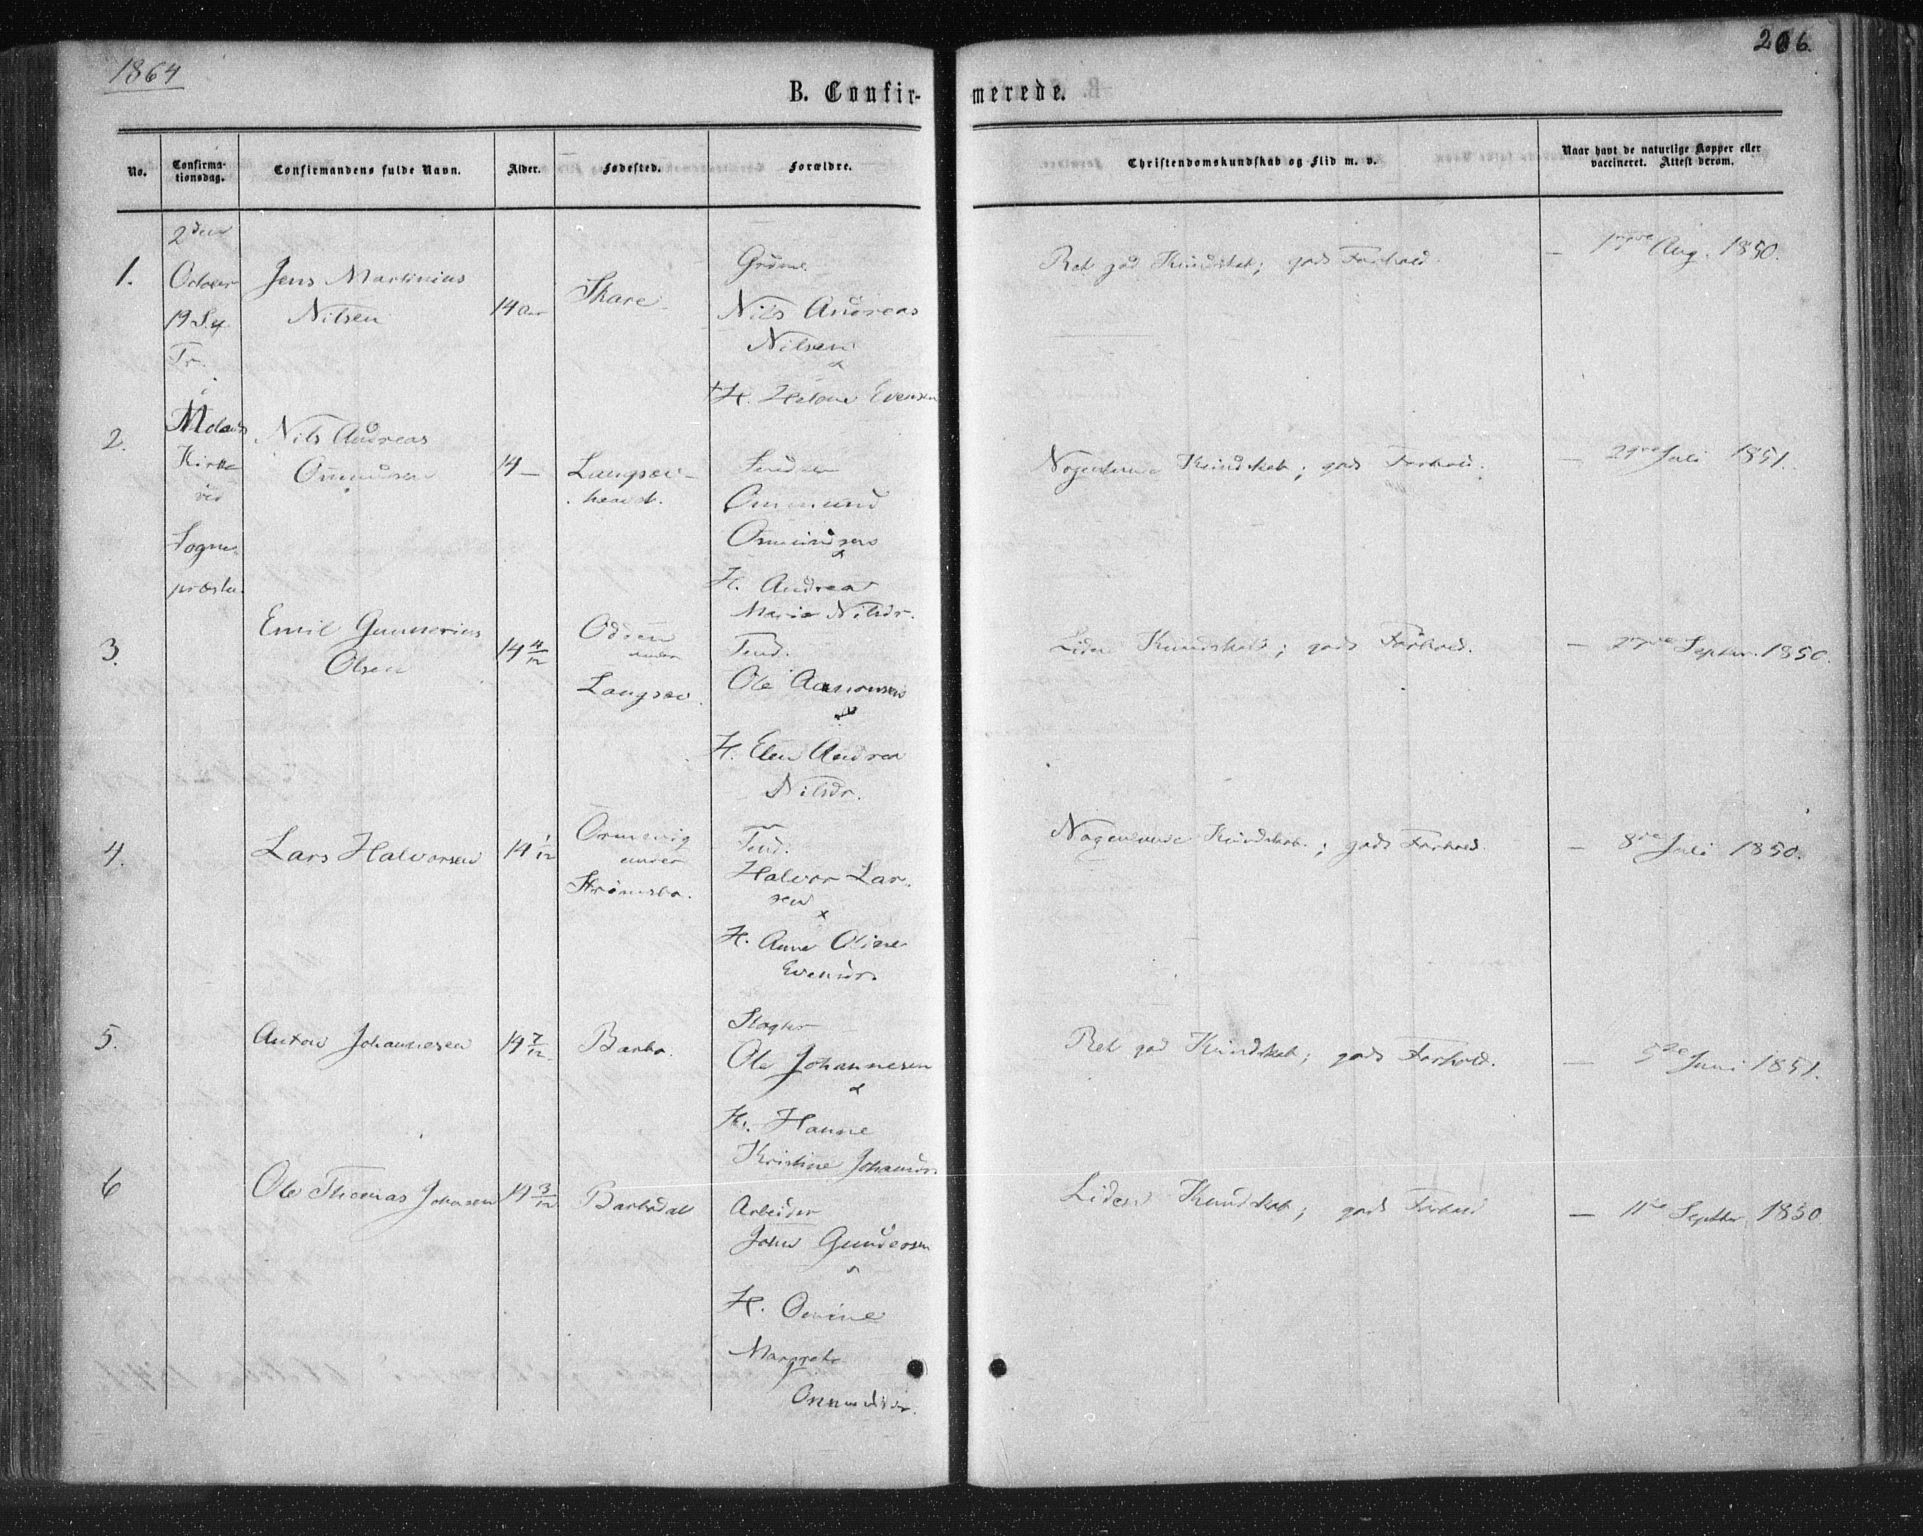 1864
206.
B. Confir-
merede.
No.
Confirma-
tionsdag.
Confirmandens fulde Navn.
Alder.
Fødested.
Forældre.
Christendomskundskab og Flid m. v.
Naar havt de naturlige Kopper eller
vaccineret. Attest derom.
2den
October
19 S. ef.
Tr.
i
Molands
Kirke
ved
Sogne-
præsten.
1.
Jens Martinius
Nilsen
14 Aar
Skare
Nils Andreas
Nilsen
H. Helene Evensen
Ret god Kundskab; gods Forhold.
Aug. 1850.
2.
Nils Andreas
14 —
Langsæv-
Ommund
H. Andrea
Marie Nilsdr.
Nogenlunde Kundskab; gods Forhold.
— 29de Juli 1851.
3.
Emil Gunnerius
Olsen
14 4/12
under
Langsæv.
Tend.
Ole Aanonsen
H. Elen Andrea
Nilsdr.
Liden Kundskab; gods Forhold.
— 27de Septbr. 1850.
4.
Lars Halvorsen
14 1/12
Ormevig
under
Strømsbo.
Tend.
Halvor Lar-
sen
x
H. Anne Oline
Evensdr.
Nogenlunde Kundskab; gods Forhold.
— 8de Juli 1850.
5.
Anton Johannesen
14 7/12
Barbo.
Slagter
Ole Johannesen
H. Hanne
Kristine Johansdr.
Ret god Kundskab; gods Forhold.
— 5te Juni 1851.
6
Ole Thomas Johnsen
14 3/12
Barbodal
Arbeider
John Gundersen
H.
Margrete
Liden Kundskab; gods Forhold
— 11te Septbr. 1850.